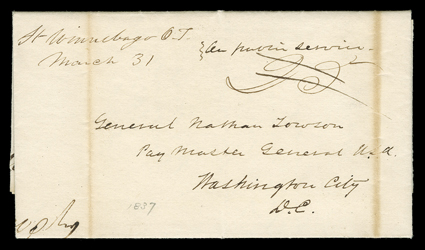 Ft Winnebago O.T.
March 31
On public service
General Nathan Towson
Pay Master General U.S.A.
Washington City
D.C.
1837